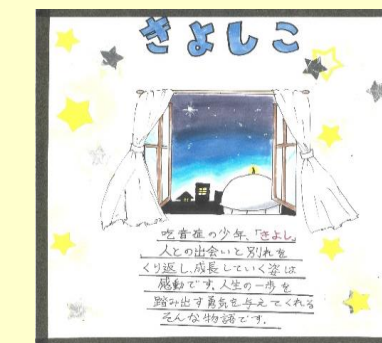 きよしこ
吃音症の少年、「きよし」
人との出会いと別れを
くり返し、成長していく姿は
感動です。人生の一歩を
踏み出す勇気を与えてくれる
そんな物語です。